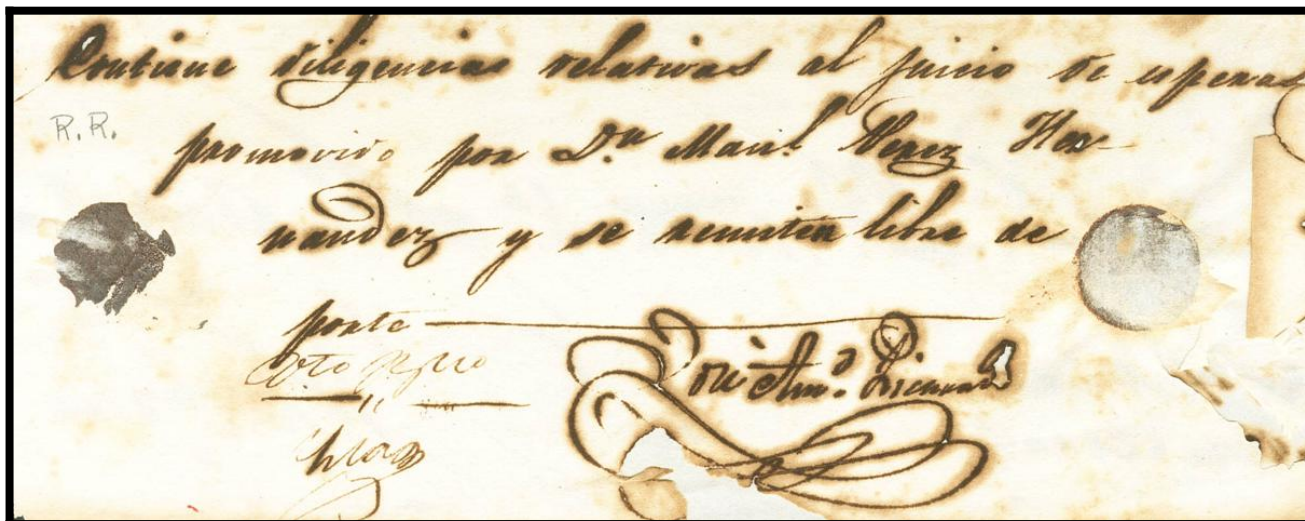 Contiene diligencias relativas al juicio de esperas
R. R.
promovido por Dn Manl. Perez Her
nandez y se remiten libre de
porte
José Anto.